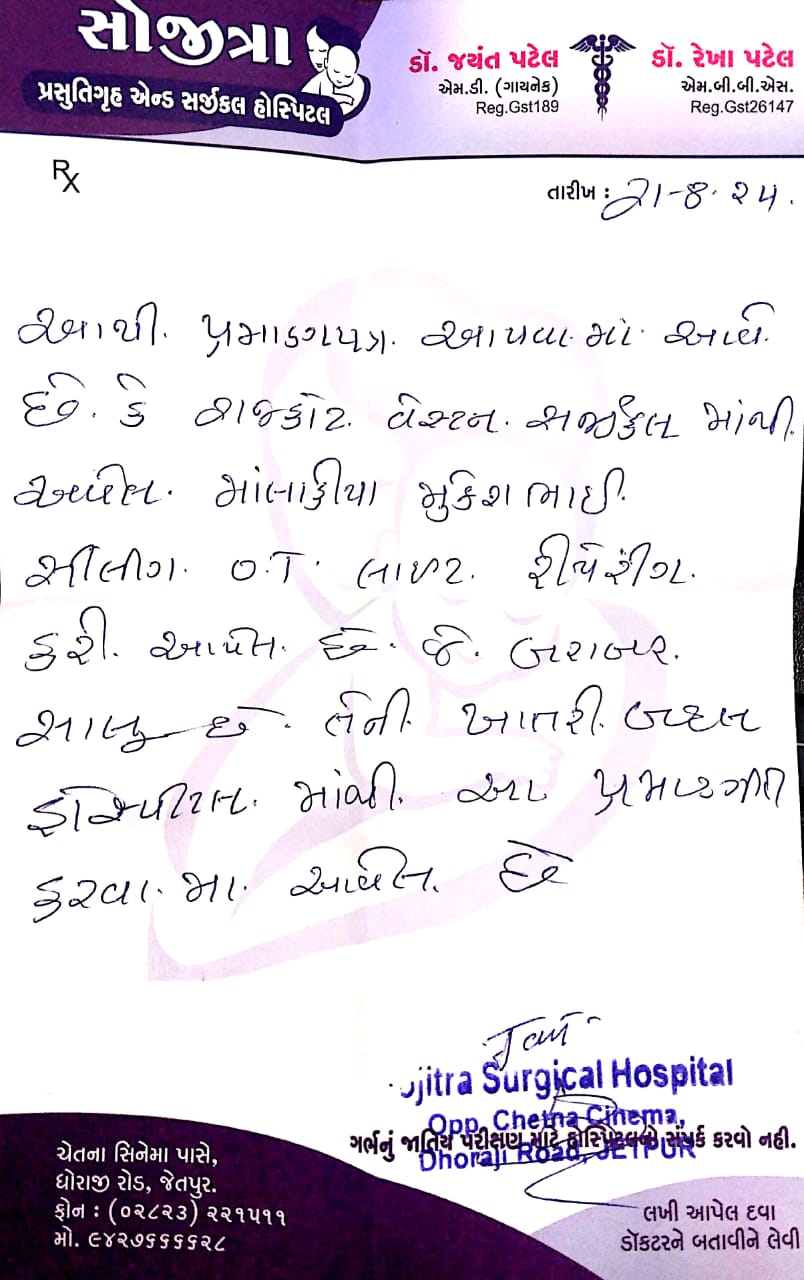 સોજીત્રા
પ્રસુતિગૃહ એન્ડ સર્જીકલ હોસ્પિટલ
ડૉ. જયંત પટેલ
એમ.ડી. (ગાયનેક)
Reg.Gst189
ડૉ. રેખા પટેલ
એમ.બી.બી.એસ.
Reg.Gst26147
Rx
તારીખ : 21-8-24.
આથી. પ્રમાણપત્ર. આપવા માં આવે
છે. કે રાજકોટ. વેસ્ટન. સર્જીકલ માંથી.
આવેલ. માંલાકીયા મુકેશભાઈ.
સીલીંગ. O.T. લાઈટ. રીપેરીંગ.
કરી. આપેલ. છે. જે. બરાબર.
ચાલુ છે. તેની. ખાતરી. બદલ
હોસ્પિટલ. માંથી. આ પ્રમાણીત
કરવા. મા. આવેલ. છે
jitra Surgical Hospital
Opp. Chetna Cinema,
Dhoraji Road, JETPUR
ગર્ભનું જાતિય પરીક્ષણ માટે હોસ્પિટલનો સંપર્ક કરવો નહી.
ચેતના સિનેમા પાસે,
ધોરાજી રોડ, જેતપુર.
ફોન : (૦૨૮૨૩) ૨૨૧૫૧૧
મો. ૯૪૨૭૬૬૬૬૨૮
લખી આપેલ દવા
ડૉકટરને બતાવીને લેવી